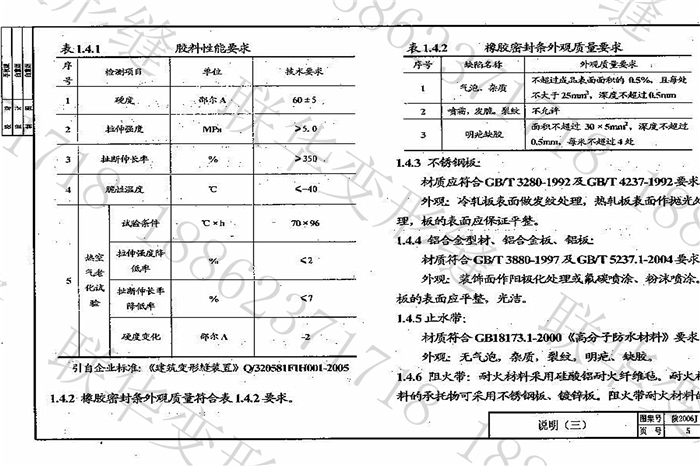 表1.4.1 胶料性能要求
序号 检测项目 单位 技术要求
1 硬度 邵尔A 60±5
2 拉伸强度 MPa ≥5.0
3 扯断伸长率 % ≥350
4 脆性温度 ℃ ≤-40
5 热空气老化试验 试验条件 ℃×h 70×96
拉伸强度降低率 % ≤2
扯断伸长率降低率 % ≤7
硬度变化 邵尔A -2
引自企业标准:《建筑变形缝装置》Q/320581FIH001-2005
1.4.2 橡胶密封条外观质量符合表1.4.2要求。
表1.4.2 橡胶密封条外观质量要求
序号 缺陷名称 外观质量要求
1 气泡、杂质 不超过成品表面面积的0.5%,且每处
不大于25mm²,深度不超过0.5mm
2 喷霜,发脆,裂纹 不允许
3 明疤缺胶 面积不超过30×5mm²,深度不超过
0.5mm,每米不超过4处
1.4.3 不锈钢板:
材质应符合GB/T 3280-1992及GB/T 4237-1992要求
外观:冷轧板表面做发纹处理,热轧板表面作抛光处
理,板的表面应保证平整。
1.4.4 铝合金型材、铝合金板、铝板:
材质符合GB/T 3880-1997及GB/T 5237.1-2004要求
外观:装饰面作阳极化处理或氟碳喷涂、粉沫喷涂。
板的表面应平整,光洁。
1.4.5 止水带:
材质符合GB18173.1-2000《高分子防水材料》要求
外观:无气泡,杂质,裂纹,明疤、缺胶。
1.4.6 阻火带:耐火材料采用硅酸铝耐火纤维毡。耐火材
料的承托物可采用不锈钢板、镀锌板。阻火带耐火材料的
说明(三)
图集号 陕2006J
页号 5
联华变形缝
18862371718